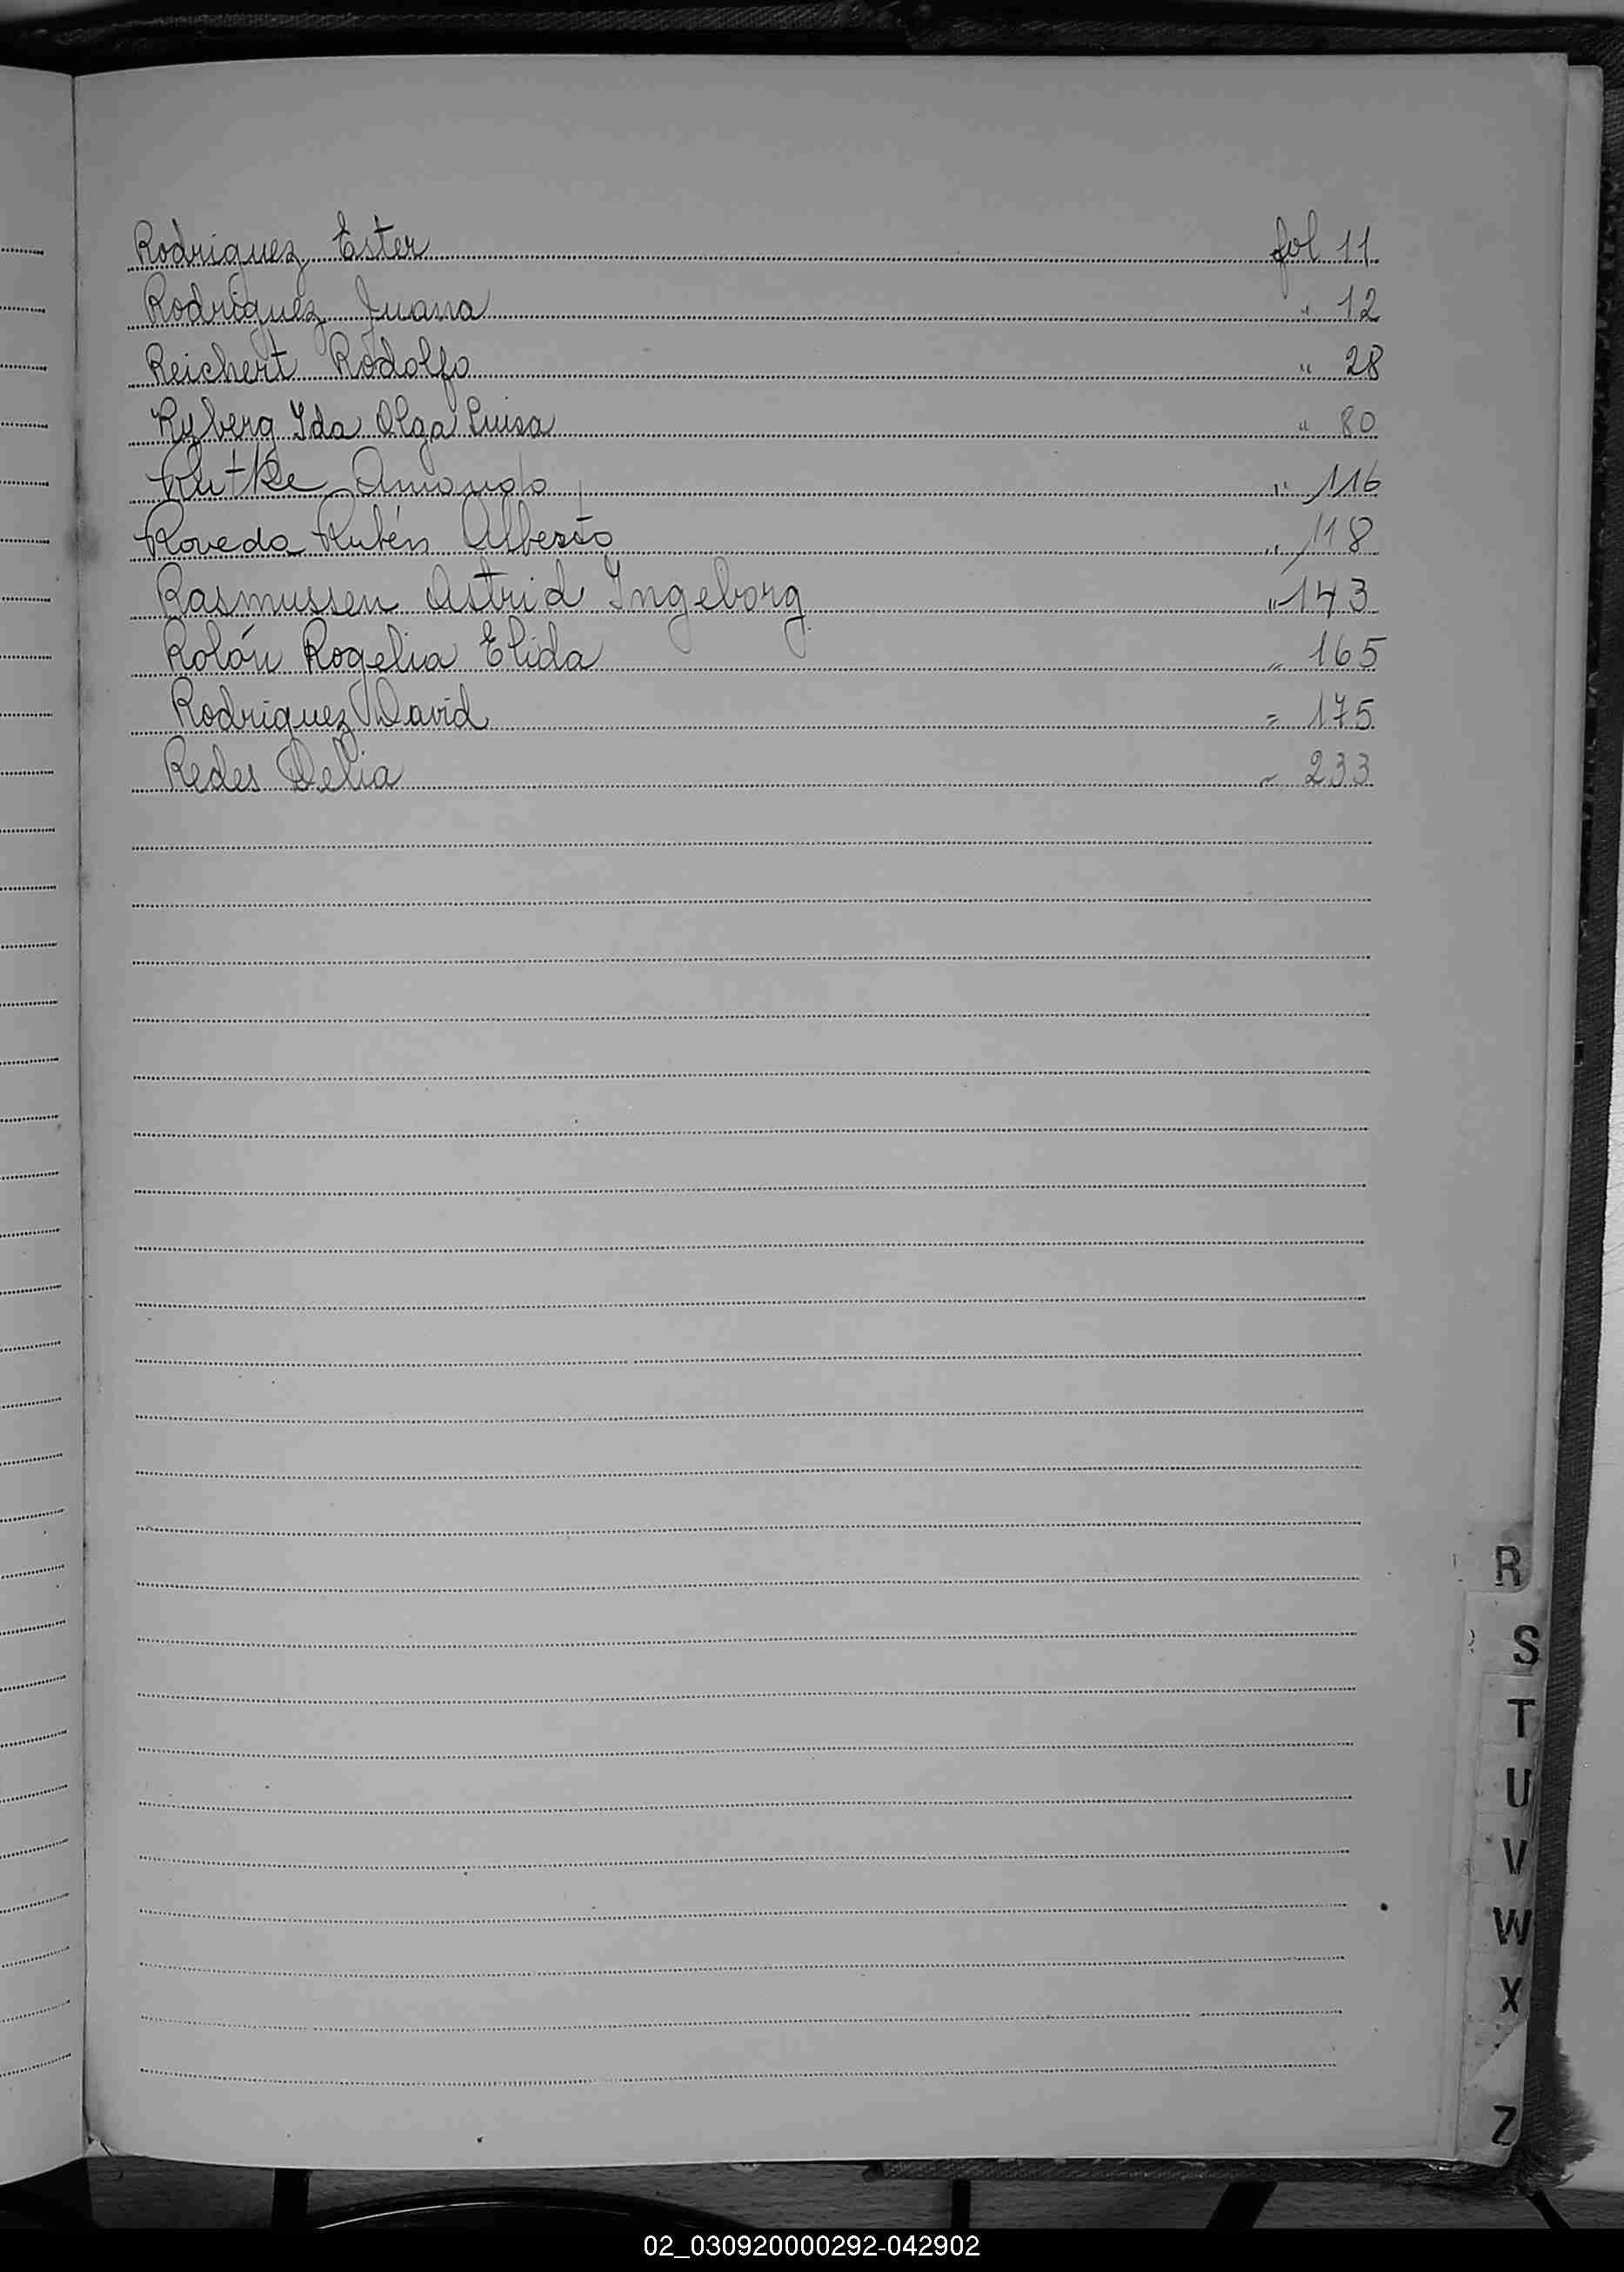 Rodriguez Ester fol 11
Rodriguez Juana " 12
Reichert Rodolfo " 28
Ryberg Ida Olga Luisa " 80
Rutke Amando " 116
Roveda Rubén Alberto " 118
Rasmussen Astrid Ingeborg " 143
Rolón Rogelia Elida " 165
Rodriguez David = 175
Redes Delia " 233
R
S
T
U
V
W
X
Z
02_030920000292-042902